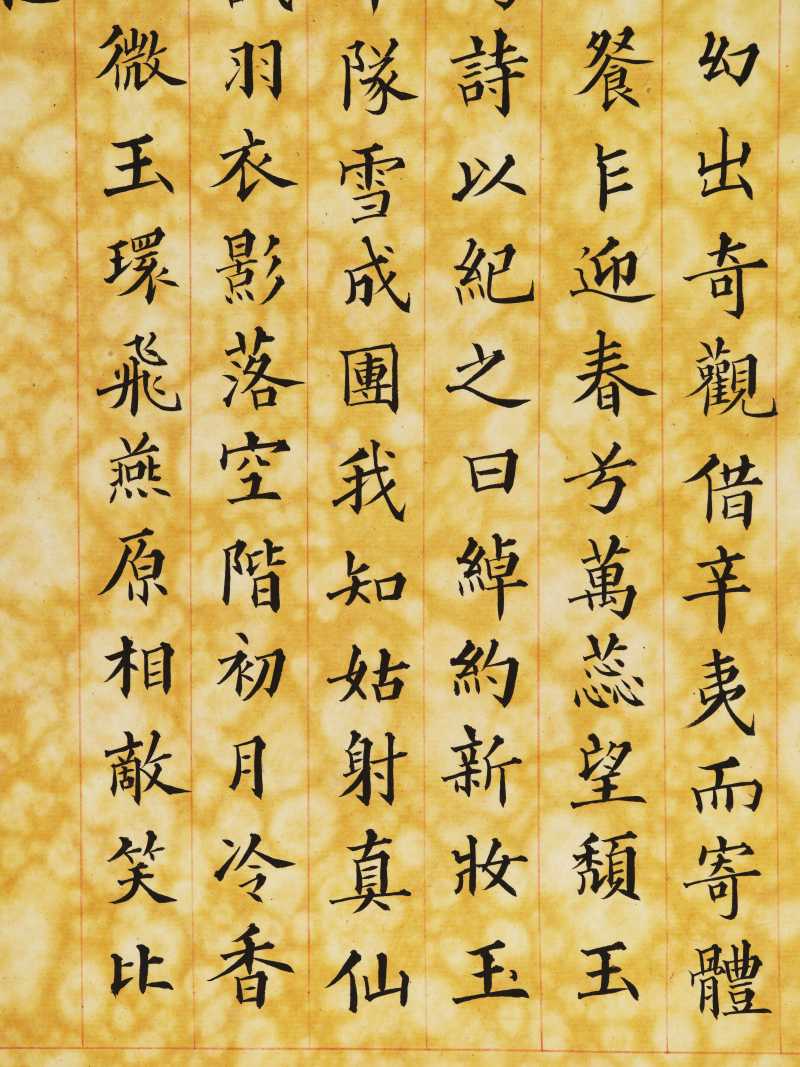 幻出奇觀借辛夷而寄體
餐乍迎春兮萬蕊望頽玉
詩以紀之曰綽約新妝玉
隊雪成團我知姑射真仙
羽衣影落空階初月冷香
微玉環飛燕原相敵笑比